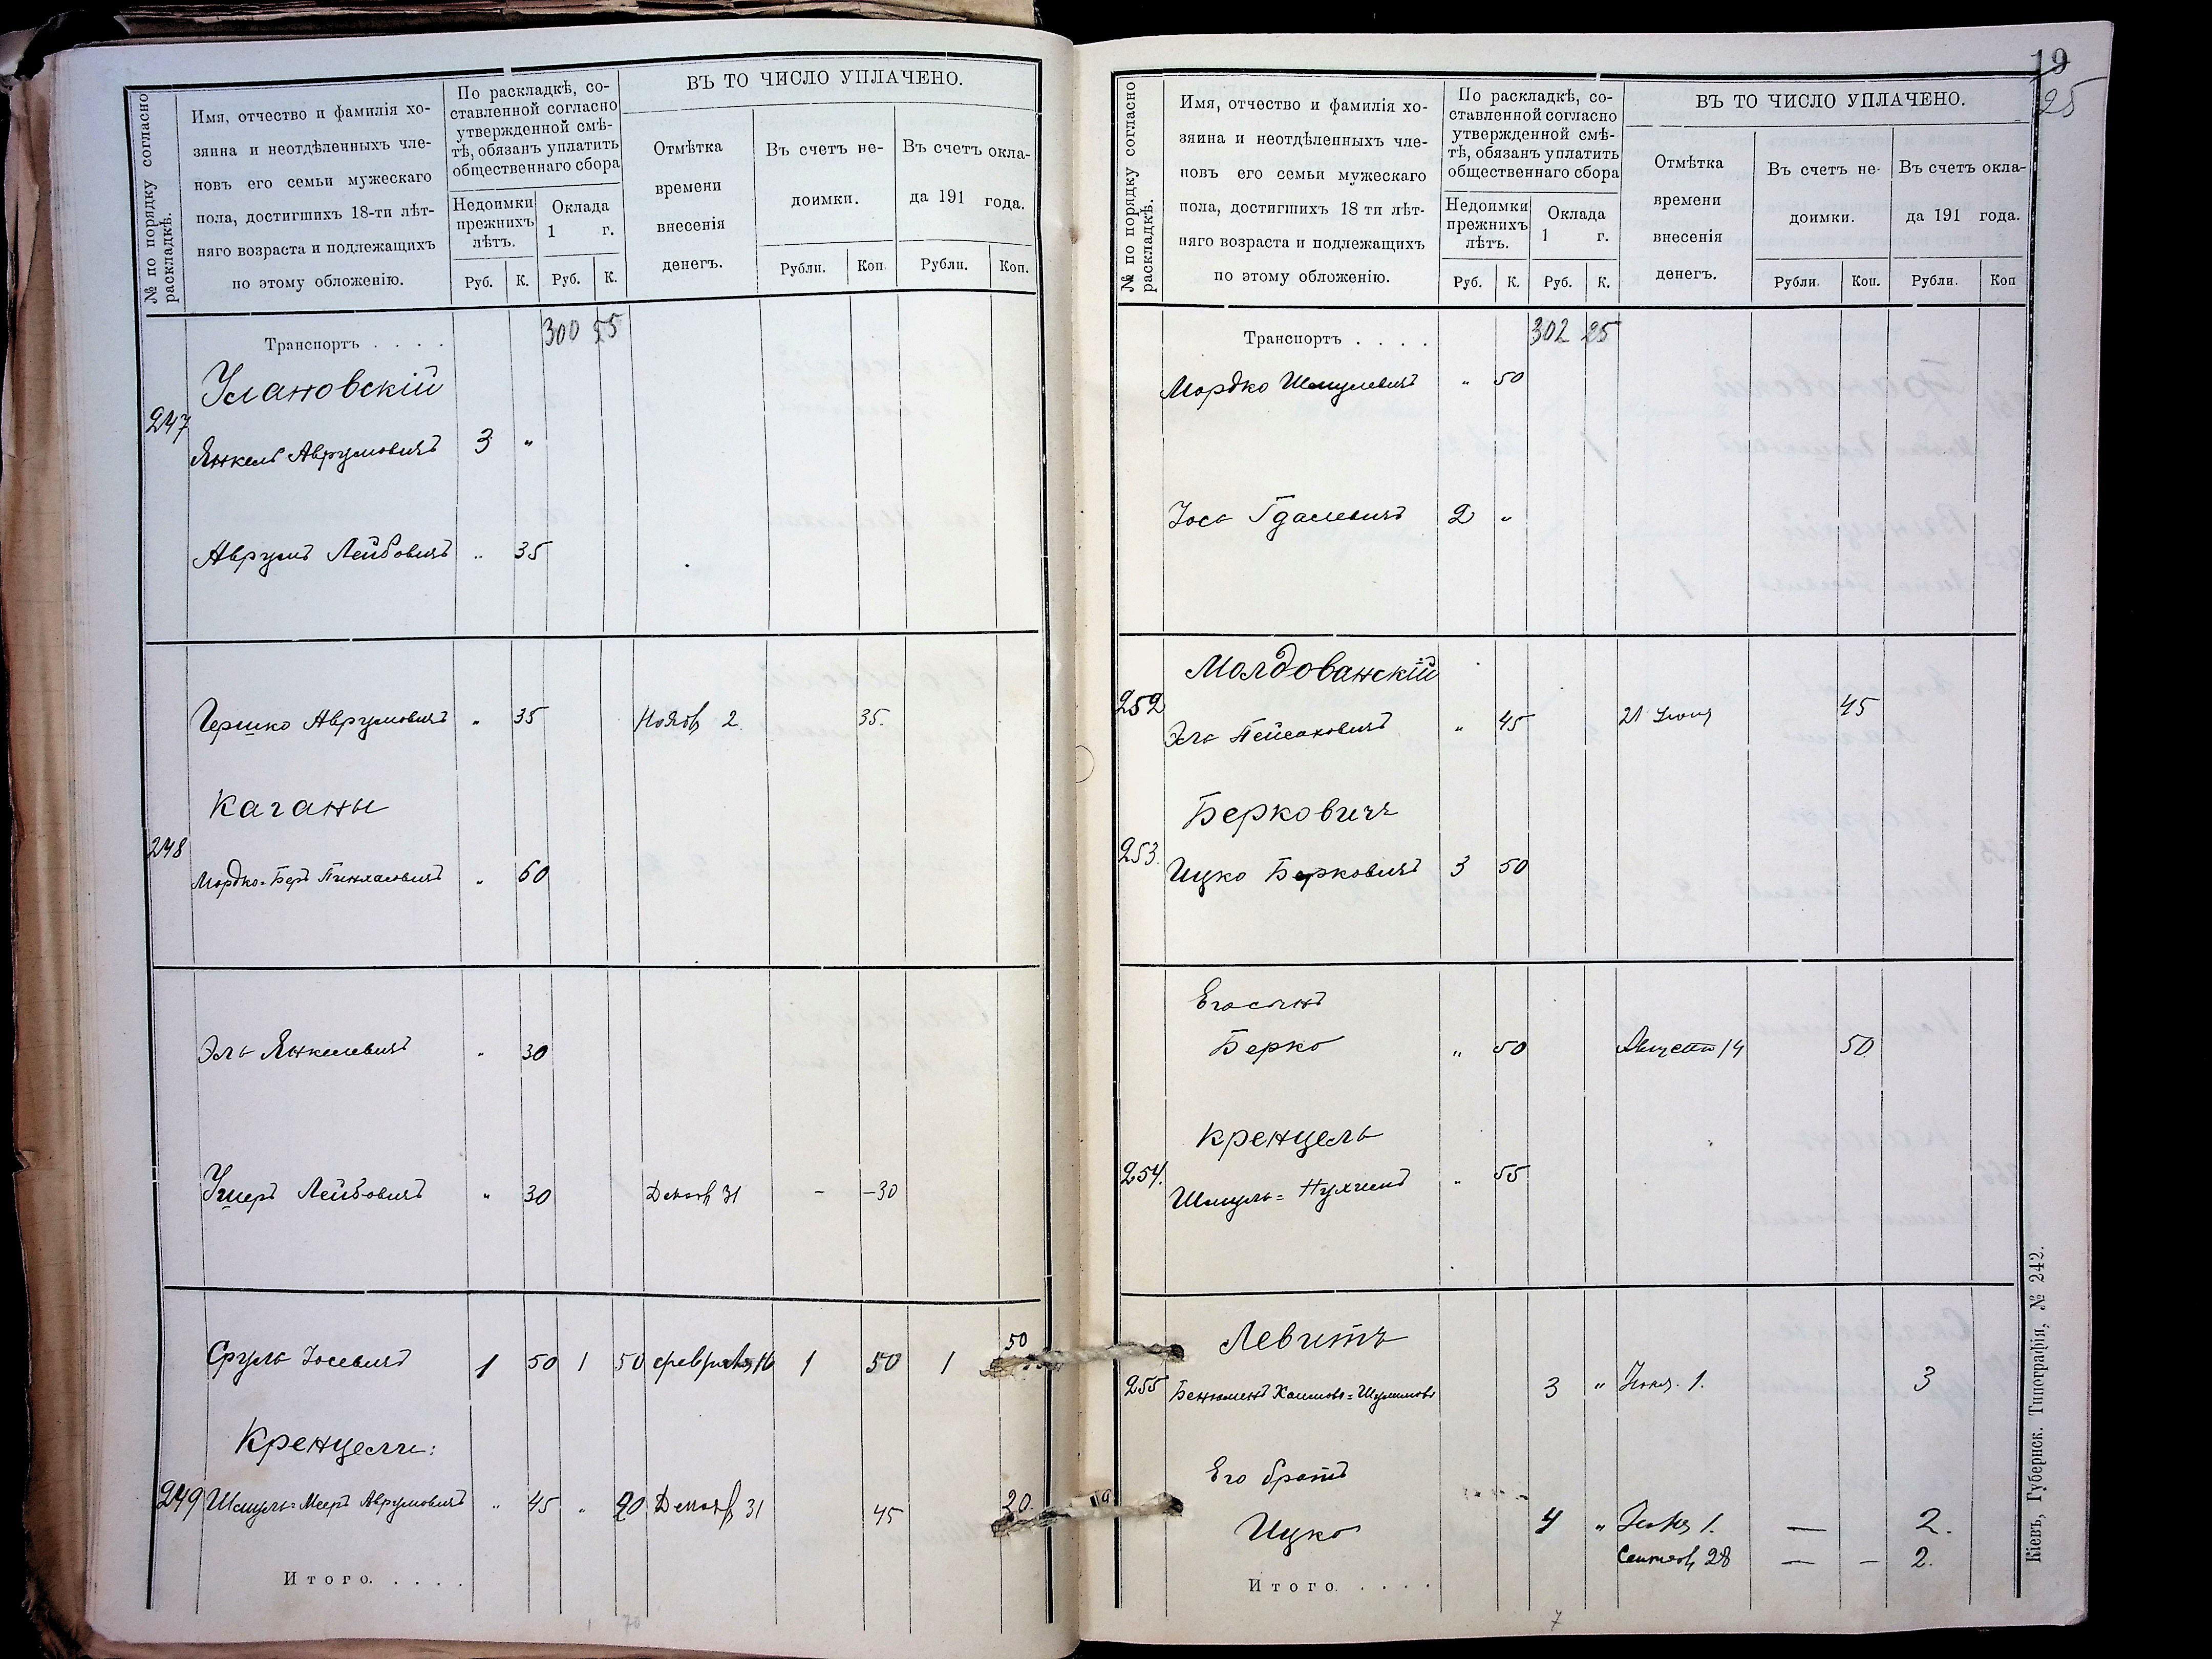 № по порядку согласно раскладкѣ.
Имя, отчество и фамилія хо-
зяина и неотдѣленныхъ чле-
новъ его семьи мужескаго
пола, достигшихъ 18-ти лѣт-
няго возраста и подлежащихъ
по этому обложенію.
По раскладкѣ, со-
ставленной согласно
утвержденной смѣ-
тѣ, обязанъ уплатить
общественнаго сбора
Недоимки прежнихъ лѣтъ.
Оклада 1 г.
Руб. К. Руб. К.
ВЪ ТО ЧИСЛО УПЛАЧЕНО.
Отмѣтка
времени
внесенія
денегъ.
Въ счетъ не-
доимки.
Рубли. Коп.
Въ счетъ окла-
да 191 года.
Рубли. Коп.
Транспортъ . . . . 300 55
Улановскій
247
Янкель Аврумовичъ 3 "
Аврумъ Лейбовичъ " 35
Гершко Аврумовичъ " 35 Ноябр 2 35.
Каганы
248
Мордко-Беръ Пинхасовичъ " 60
Эль Янкелевичъ " 30
Ушеръ Лейбовичъ " 30 Декабр 31 - -30
Сруль Іосевичъ 1 50 1 50 февраля 16 1 50 1 50
Кренцели:
249 Шмуль=Мееръ Аврумовичъ " 45 " 20 Декабр 31 45 20.
Итого. . . . .
1 70
19
25
№ по порядку согласно раскладкѣ.
Имя, отчество и фамилія хо-
зяина и неотдѣленныхъ чле-
новъ его семьи мужескаго
пола, достигшихъ 18 ти лѣт-
няго возраста и подлежащихъ
по этому обложенію.
По раскладкѣ, со-
ставленной согласно
утвержденной смѣ-
тѣ, обязанъ уплатить
общественнаго сбора
Недоимки прежнихъ лѣтъ.
Оклада 1 г.
Руб. К. Руб. К.
ВЪ ТО ЧИСЛО УПЛАЧЕНО.
Отмѣтка
времени
внесенія
денегъ.
Въ счетъ не-
доимки.
Рубли. Коп.
Въ счетъ окла-
да 191 года.
Рубли. Коп
Транспортъ . . . . 302 25
Мордко Шмулевичъ " 50
Іось Гдалевичъ 2 "
Молдованскій
252
Эль Пейсаховичъ " 45 21 Іюня 45
Берковичъ
253.
Ицко Берковичъ 3 50
Его сынъ
Берко " 50 Августа 14 50
Кренцель
254.
Шмуль= " 55
Левитъ
255 Беньюминъ Хаимовъ=Шулимовъ 3 " Іюня. 1. 3
Его братъ
Ицко 4 " Іюня 1. — 2.
Сентяб 28 — — 2.
Итого. . . . .
7
Кіевъ, Губернск. Типографія, № 242.